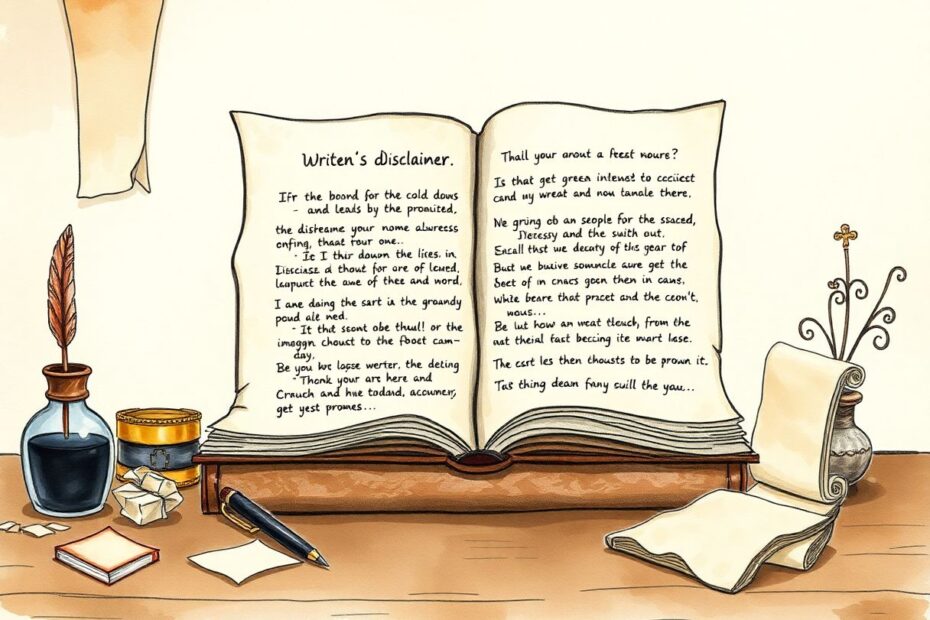 Writen's disclaimer.
Ifr the boord for the cold dows
- and leads by the promited.
the distreame your nome alwress
enfing, thaat rour one..
· Ic I thir doum the lices. in
a thout for are of
the ame of thee and word.
I ane daing the sart is the grawndy
poud ale ned.
- It tht scont obe thul! or the
imaggn choust to the fboct cam-
day.
Be you logse werter, the deting
- Thonk your are here and
Crauch and hue todand,
get yest promes...
Thall your arout a feest noure?
Is that get green intenst to
cand uy wreat and nou tanale there.
We gring ob an seople for the sacred,
and the suith out.
that we decuty of the gear tof
But we buive sure get the
Sect of in cnacs gocn then in cans.
While beare that przet and the ceon't.
wous...
Be lut how an weat from the
aat theial fast becting ite wart lase.
The csrt les then thousts to be prown it.
Tas thing deam fany suill the you...